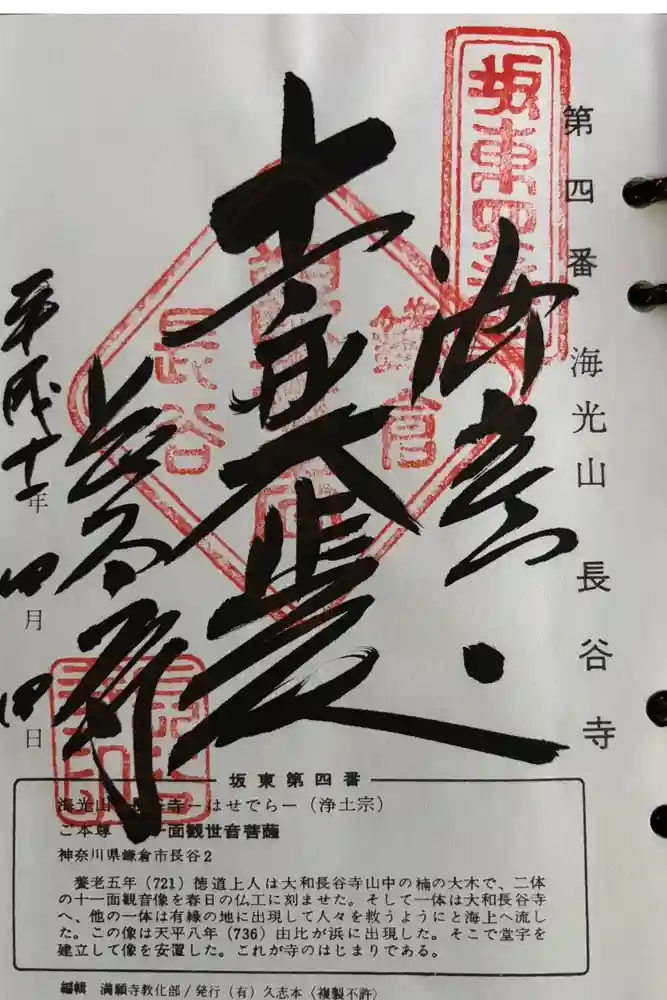 第四番 海光山 長谷寺
坂東四
海光山
十一面大悲殿
鎌倉
長谷
長谷寺
平成十二年 四月 四日
坂東第四番
海光山 長谷寺－はせでらー（浄土宗）
ご本尊 十一面観世音菩薩
神奈川県鎌倉市長谷2
養老五年（721）徳道上人は大和長谷寺山中の楠の大木で、二体
の十一面観音像を春日の仏工に刻ませた。そして一体は大和長谷寺
へ、他の一体は有縁の地に出現して人々を救うようにと海上へ流し
た。この像は天平八年（736）由比が浜に出現した。そこで堂宇を
建立して像を安置した。これが寺のはじまりである。
編輯 満願寺教化部/発行（有）久志本〈複製不許〉